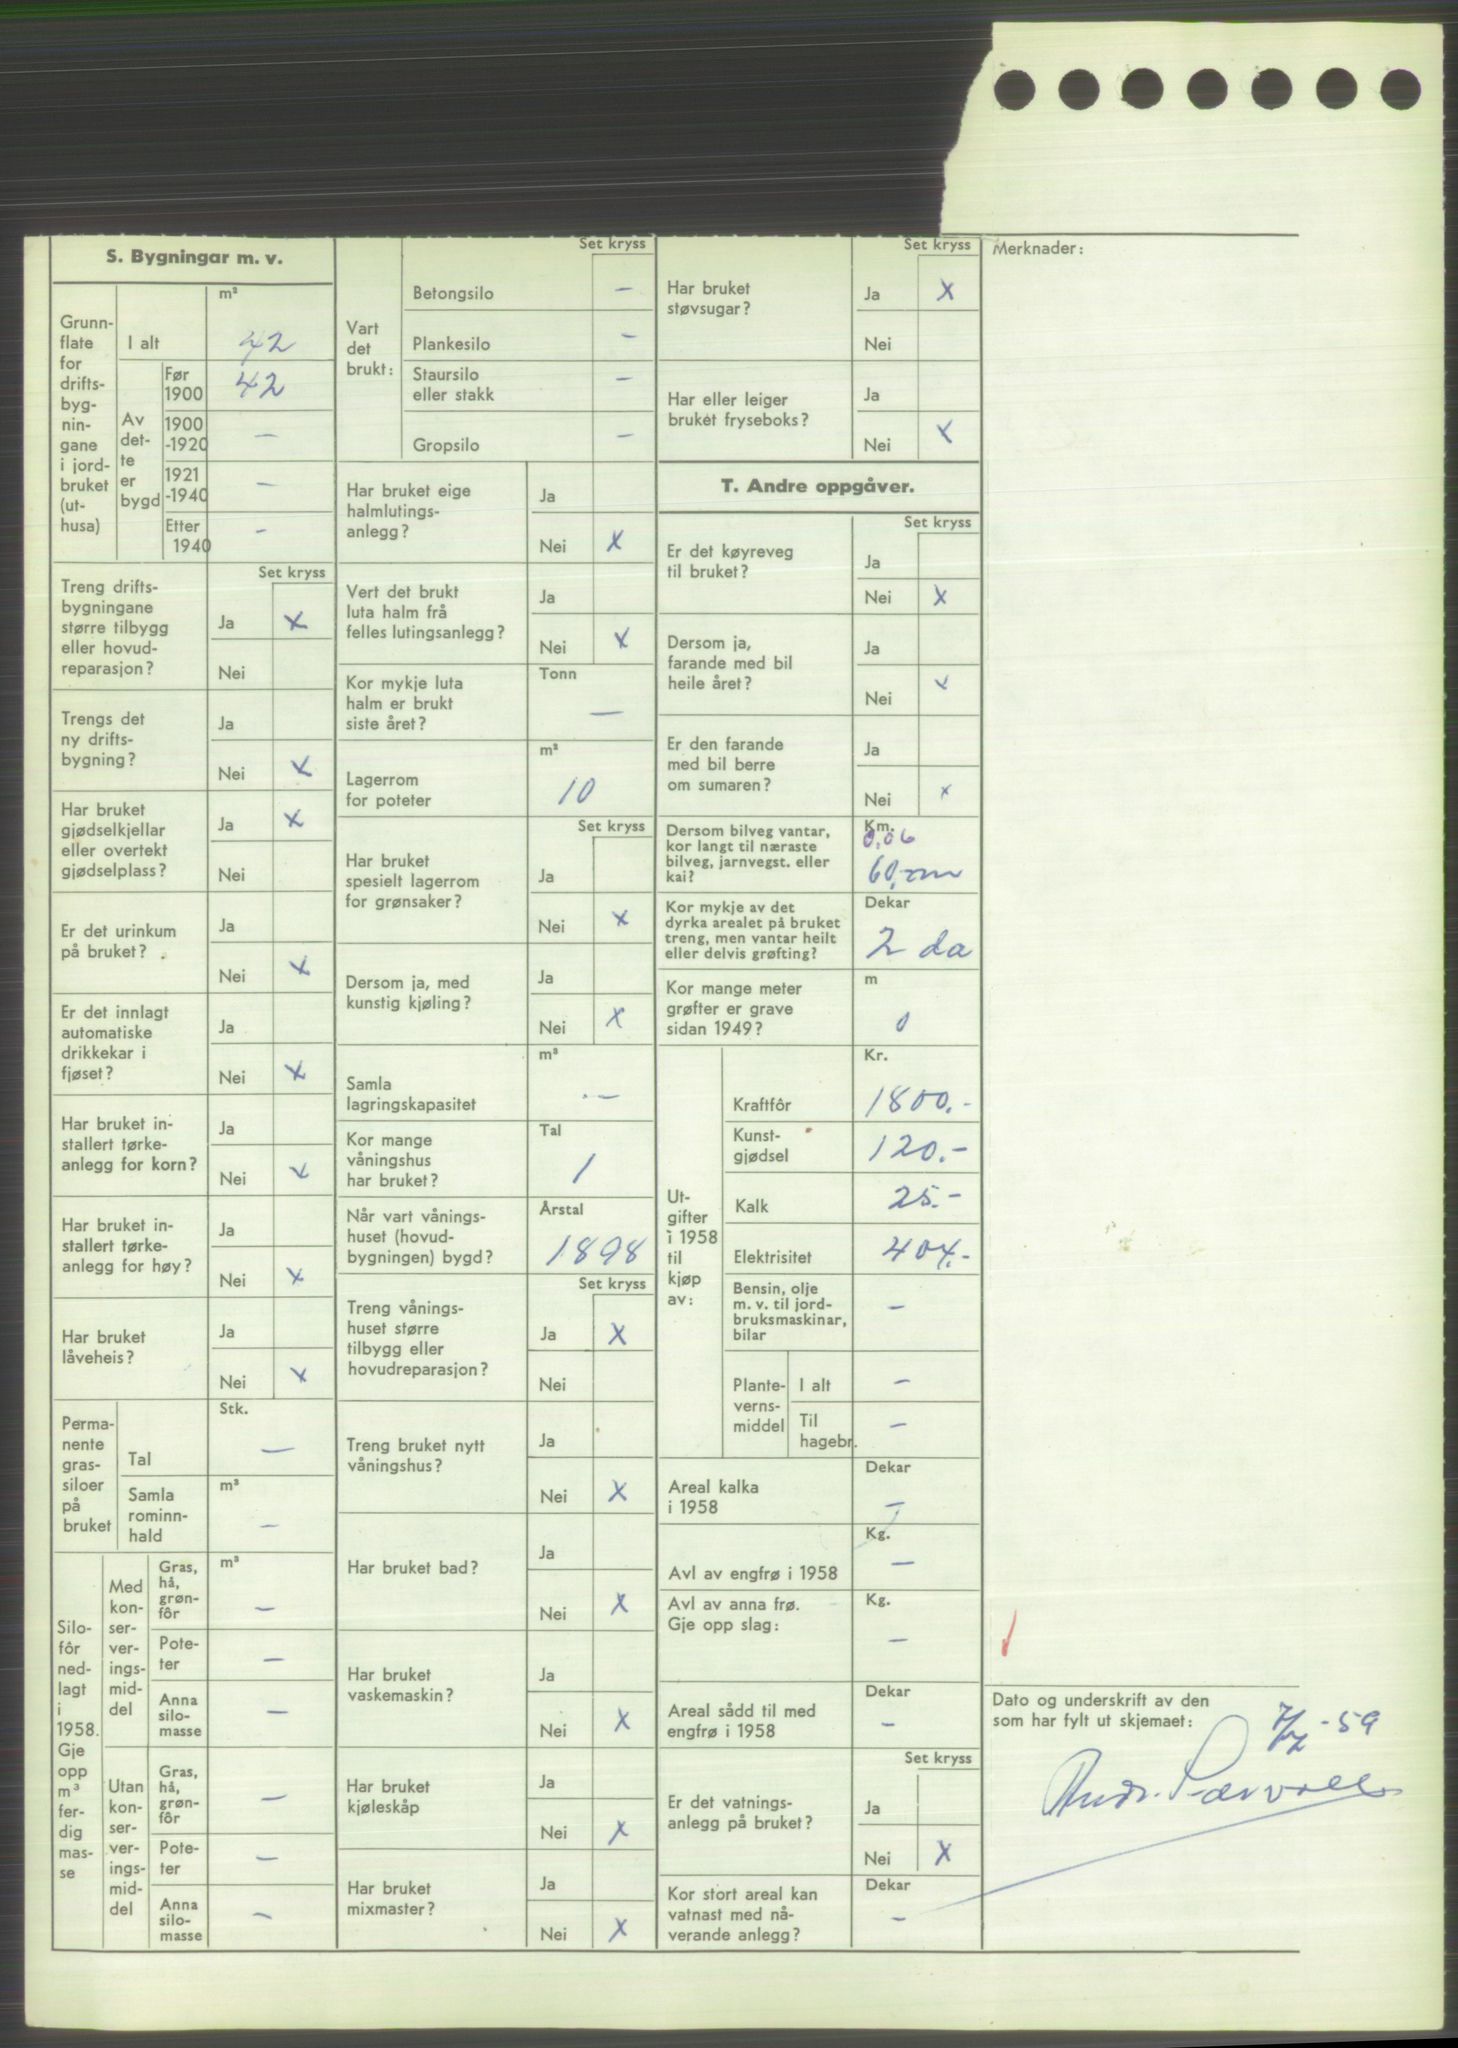 S. Bygningar m. v.
Grunn-
flate
for
drifts-
byg-
nin-
gane
i jord-
bruket
(ut-
husa)
m²
I alt
42
Av
det-
te
er
bygd
Før
1900
42
1900
-1920
—
1921
-1940
—
Etter
1940
—
Set kryss
Treng drifts-
bygningane
større tilbygg
eller hovud-
reparasjon?
Ja x
Nei
Trengs det
ny drifts-
bygning?
Ja
Nei x
Har bruket
gjødselkjellar
eller overtekt
gjødselplass?
Ja x
Nei
Er det urinkum
på bruket?
Ja
Nei x
Er det innlagt
automatiske
drikkekar i
fjøset?
Ja
Nei x
Har bruket in-
stallert tørke-
anlegg for korn?
Ja
Nei x
Har bruket in-
stallert tørke-
anlegg for høy?
Ja
Nei x
Har bruket
låveheis?
Ja
Nei x
Perma-
nente
gras-
siloer
på
bruket
Stk.
Tal
—
m³
Samla
rominn-
hald
—
Silo-
fôr
ned-
lagt
i
1958.
Gje
opp
m³
fer-
dig
mas-
se
Med
kon-
ser-
ver-
ings-
mid-
del
m³
Gras,
hå,
grøn-
fôr
—
Pote-
ter
—
Anna
silo-
masse
—
Utan
kon-
ser-
ver-
ings-
mid-
del
Gras,
hå,
grøn-
fôr
—
Pote-
ter
—
Anna
silo-
masse
—
Set kryss
Vart
det
brukt:
Betongsilo —
Plankesilo —
Staursilo
eller stakk —
Gropsilo —
Har bruket eige
halmlutings-
anlegg?
Ja
Nei x
Vert det brukt
luta halm frå
felles lutingsanlegg?
Ja
Nei x
Kor mykje luta
halm er brukt
siste året?
Tonn
—
Lagerrom
for poteter
m²
10
Set kryss
Har bruket
spesielt lagerrom
for grønsaker?
Ja
Nei x
Dersom ja, med
kunstig kjøling?
Ja
Nei x
Samla
lagringskapasitet
m³
—
Kor mange
våningshus
har bruket?
Tal
1
Når vart vånings-
huset (hovud-
bygningen) bygd?
Årstal
1898
Set kryss
Treng vånings-
huset større
tilbygg eller
hovudreparasjon?
Ja x
Nei
Treng bruket nytt
våningshus?
Ja
Nei x
Har bruket bad?
Ja
Nei x
Har bruket
vaskemaskin?
Ja
Nei x
Har bruket
kjøleskåp
Ja
Nei x
Har bruket
mixmaster?
Ja
Nei x
Set kryss
Har bruket
støvsugar?
Ja x
Nei
Har eller leiger
bruket fryseboks?
Ja
Nei x
T. Andre oppgåver.
Set kryss
Er det køyreveg
til bruket?
Ja
Nei x
Dersom ja,
farande med bil
heile året?
Ja
Nei x
Er den farande
med bil berre
om sumaren?
Ja
Nei x
Dersom bilveg vantar,
kor langt til næraste
bilveg, jarnvegst. eller
kai?
Km.
0,06
Kor mykje av det
dyrka arealet på bruket
treng, men vantar heilt
eller delvis grøfting?
Dekar
2 da
Kor mange meter
grøfter er grave
sidan 1949?
m
0
Ut-
gifter
i 1958
til
kjøp
av:
Kr.
Kraftfôr 1800.-
Kunst-
gjødsel 120.-
Kalk 25.-
Elektrisitet 404.-
Bensin, olje
m. v. til jord-
bruksmaskinar,
bilar —
Plante-
verns-
middel
I alt —
Til
hagebr. —
Areal kalka
i 1958
Dekar
—
Avl av engfrø i 1958
Kg.
—
Avl av anna frø.
Gje opp slag:
Kg.
—
Areal sådd til med
engfrø i 1958
Dekar
—
Set kryss
Er det vatnings-
anlegg på bruket?
Ja
Nei x
Kor stort areal kan
vatnast med nå-
verande anlegg?
Dekar
—
Merknader:
Dato og underskrift av den
som har fylt ut skjemaet:
7/7 -59